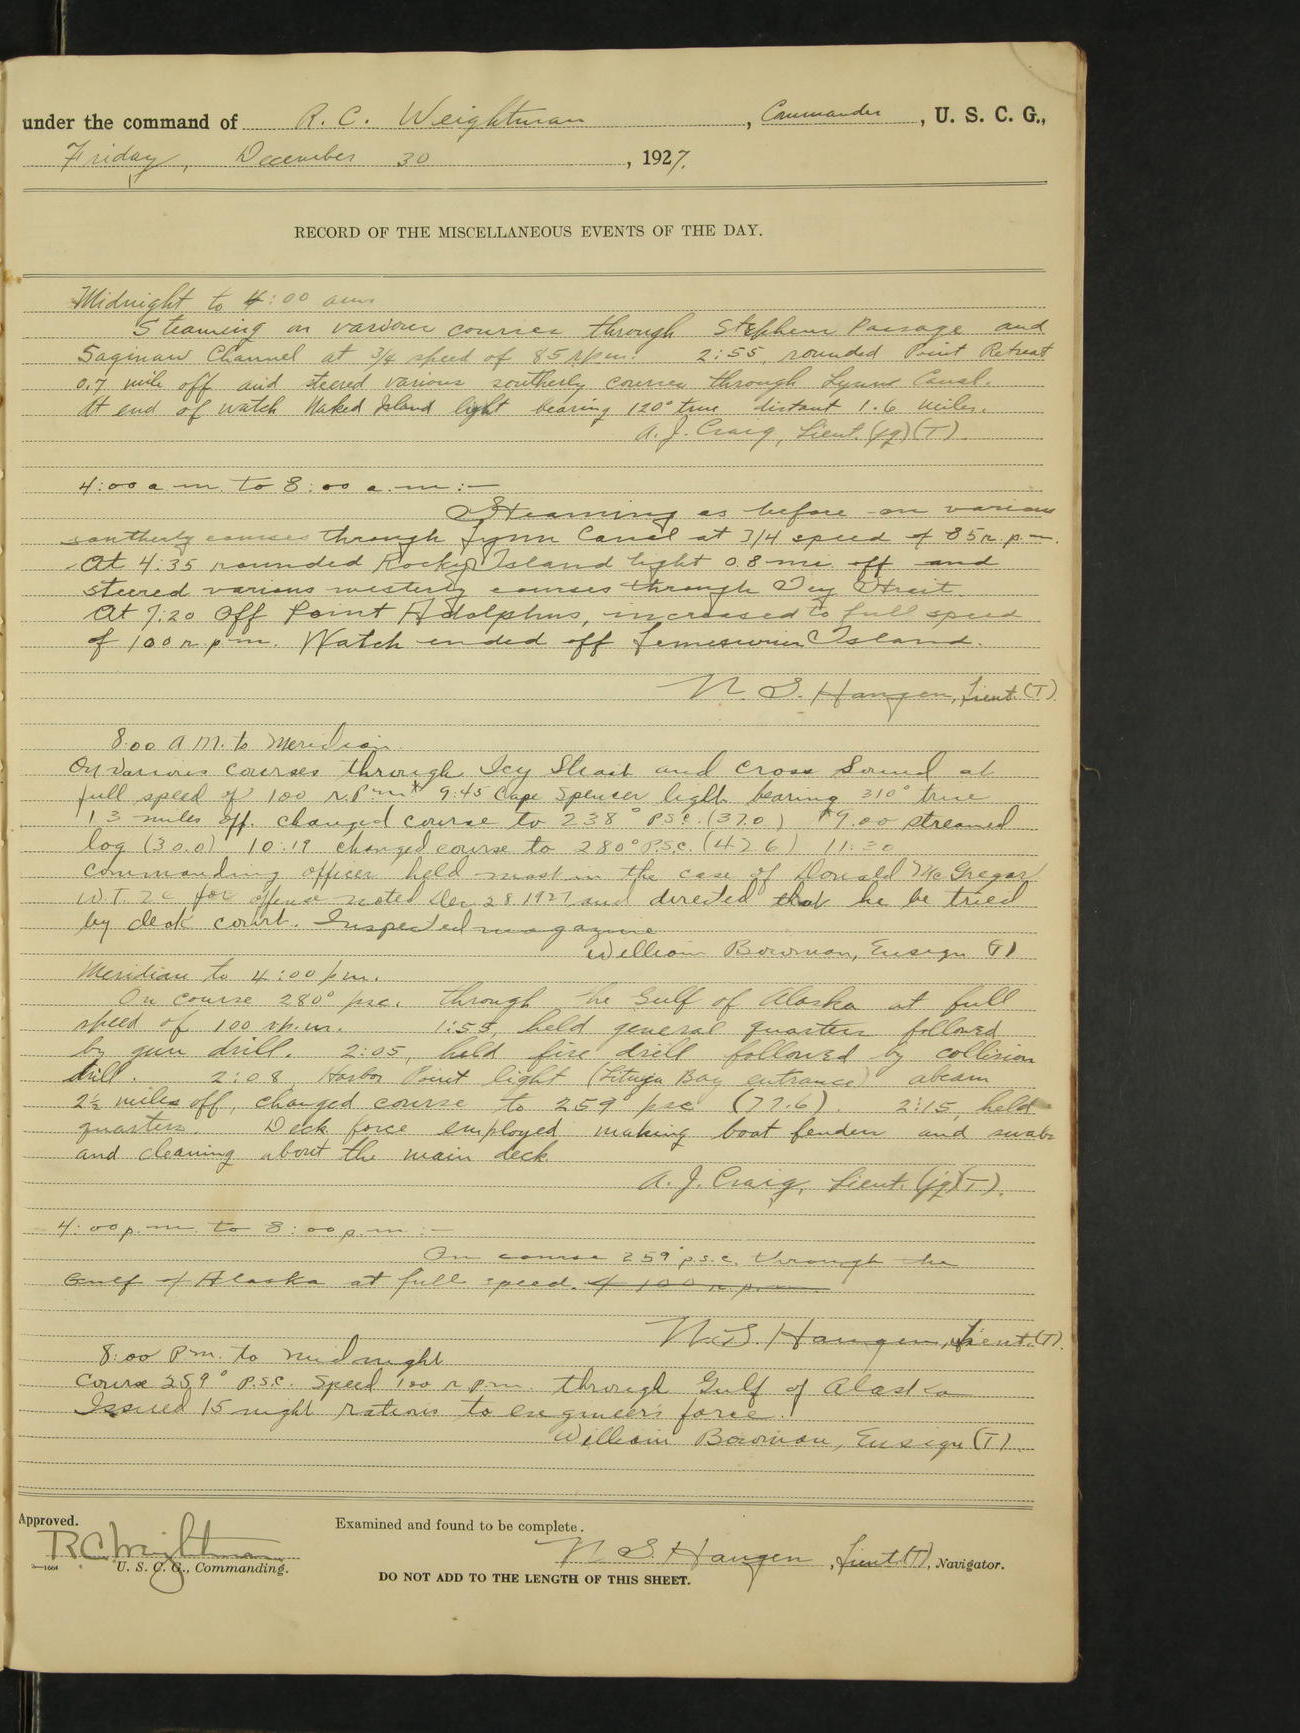 under the command of R. C. Weightman, Commander, U. S. C. G.,
Friday, December 30, 1927.
RECORD OF THE MISCELLANEOUS EVENTS OF THE DAY.
Midnight to 4:00 am
Steaming on various courses through Stephens Passage and
Saginaw Channel at 3/4 speed of 85 rpm. 2:55, rounded Point Retreat
0.7 mile off and steered various southerly courses through Lynn Canal.
At end of watch Naked Island light bearing 120° true distant 1.6 miles.
A. J. Craig, Lieut. (jg)(T).
4:00 a.m. to 8:00 a.m:—
Steaming as before on various
southerly courses through Lynn Canal at 3/4 speed of 85 r.p.m.
At 4:35 rounded Rocky Island light 0.8 mi. off and
steered various westerly courses through Icy Strait.
At 7:20 Off Point Adolphus, increased to full speed
of 100 r.p.m. Watch ended off Lemesurier Island.
N. S. Haugen, Lieut. (T).
8:00 A.M. to Meridian
On various courses through Icy Strait and Cross Sound at
full speed of 100 R.P.m. 9:45 Cape Spencer light bearing 310° true
1.3 miles off. changed course to 238° P.S.C. (37.0) 9.00 streamed
log (30.0) 10:19 changed course to 280° P.S.C. (42.6) 11:30
Commanding officer held mast in the case of Donald McGregor
W.T. 2c for offense noted Dec 28 1927 and directed that he be tried
by deck court. Inspected magazine
William Bowman, Ensign (T)
Meridian to 4:00 pm.
On course 280° psc. through the Gulf of Alaska at full
speed of 100 rp.m. 1:55, held general quarters followed
by gun drill. 2:05, held fire drill followed by collision
drill. 2:08 Harbor Point light (Lituya Bay entrance) abeam
2½ miles off, changed course to 259° psc (77.6). 2:15, held
quarters. Deck force employed making boat fenders and swabs
and cleaning about the main deck.
A. J. Craig, Lieut. (jg)(T).
4:00 p.m. to 8:00 p.m:—
On course 259° p.s.c. through the
Gulf of Alaska at full speed. of 100 r.p.m.
N. S. Haugen, Lieut. (T).
8:00 P.m. to midnight
Course 259° P.S.C. Speed 100 r.p.m. through Gulf of Alaska
Issued 15 night rations to engineers force.
William Bowman, Ensign (T).
Approved. Examined and found to be complete.
R C Weightman
U. S. C. G., Commanding.
N. S. Haugen, Lieut. (T), Navigator.
DO NOT ADD TO THE LENGTH OF THIS SHEET.